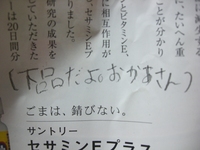 、たいへん重
ことが分かり
とビタミンE、
に相互作用が
セサミンEプ
りました。
研究の成果を
ていただきた
は20日間分
(下品だよ。おかあさん)
ごまは、錆びない。
サントリー
セサミンEプラス